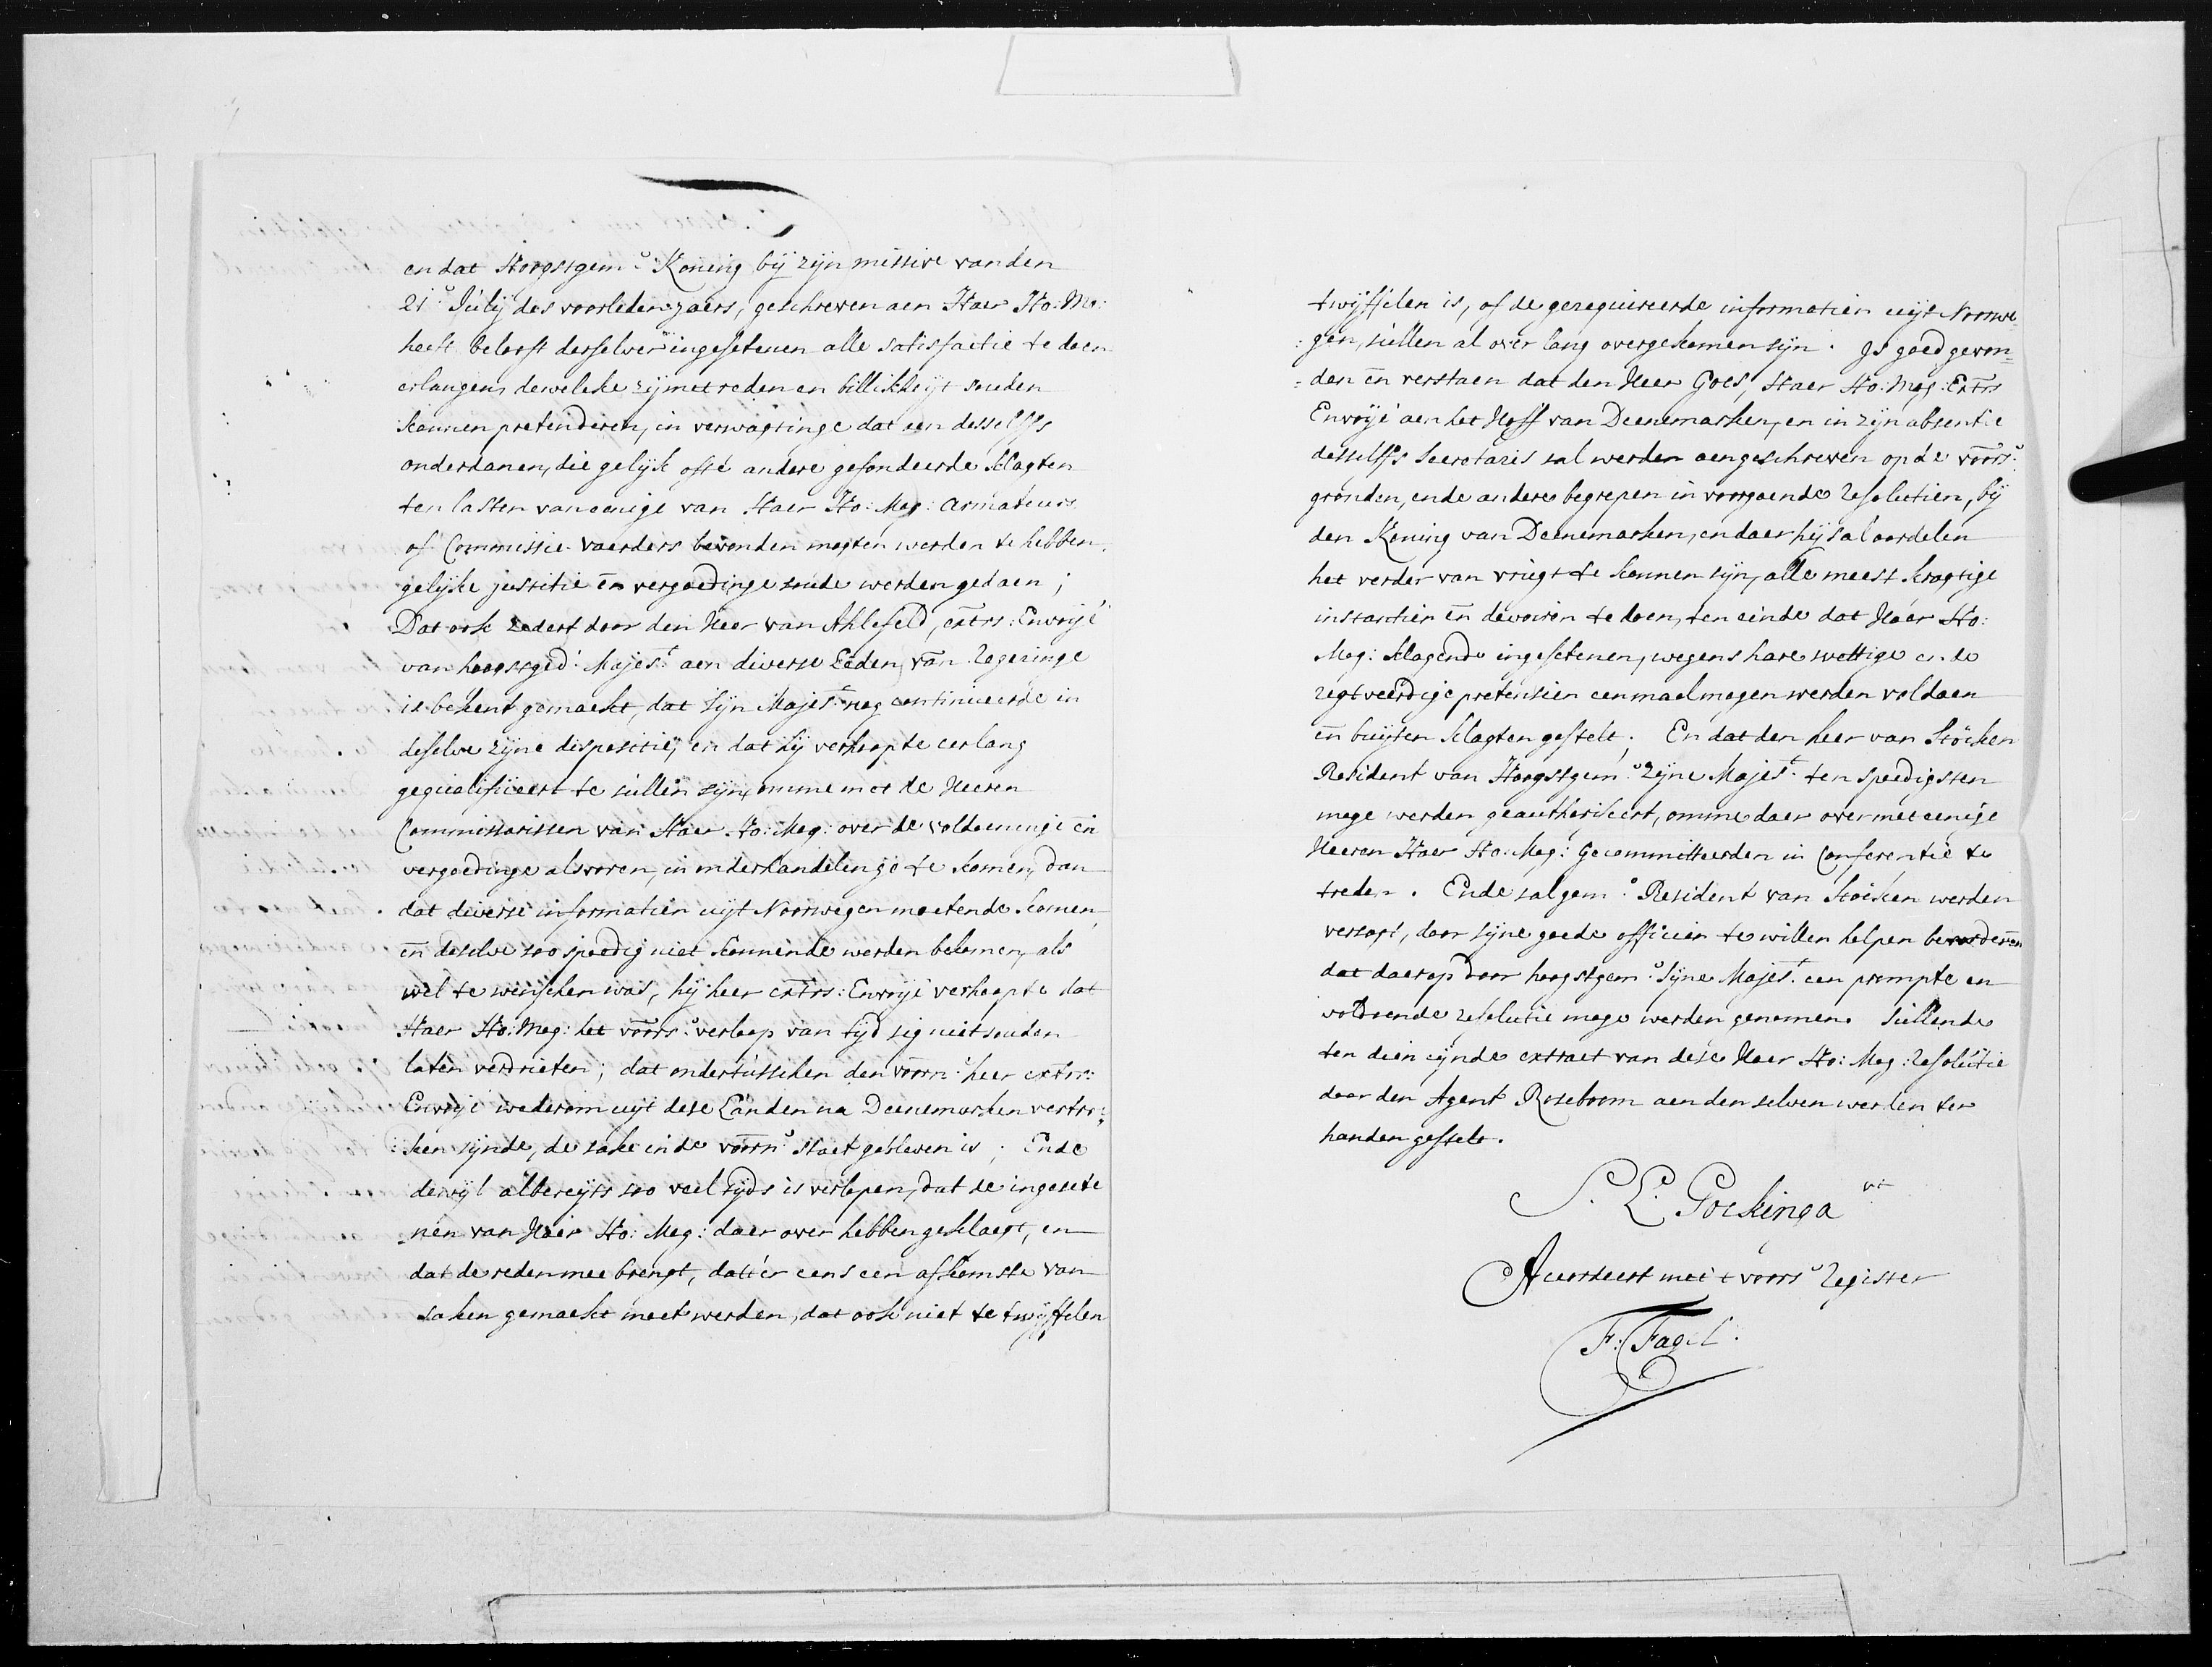 en dat Hoogstgem:e Koning bij zijn missive vanden
21e Julij des voorleden jaers, geschreven aen Haer Ho: Mo:
heeft belooft derselver ingesetenen alle satisfactie te doen
erlangen, deweleke zij met reden en billikheijt souden
konnen pretenderen, in verwagtinge dat aen desselffs
onderdanen, die gelijk offte andere gefondeerde klagten
ten lasten van eenige van Haer Ho: Mog: armateurs
of Commissie-vaerders bevonden mogten werden te hebben
gelijke justitie en vergoedinge soude werden gedaen;
Dat ook zedert door den Heer van Ahlefeld, extrs: Envoijé
van hoogstged: Majest: aen diverse Leden van regeringe
is bekent gemaekt, dat sijn Majest: nog continueerde in
deselve zijne dispositie, en dat hij verhoopte eerlang
gequalificeert te sullen zijn, omme met de Heeren
Commissarissen van Haer Ho: Mog: over de voldoeninge en
vergoedinge alsvoren, in onderhandelinge te komen, dan
dat diverse informatien uijt Noorwegen moetende komen,
en deselve soo spoedig niet konnende werden bekomen, als
wel te wenschen was, hij heer extrs: Envoijé verhoopte dat
Haer Ho: Mog: het voors: verloop van tijd sig niet souden
laten verdrieten; dat ondertusschen den voorn: heer extrs:
Envoijé wederom uijt dese Landen na Deenemarken vertro:
:ken sijnde, de sake in de voorn: staet gebleven is; Ende
dewijl albereijts soo veel tijds is verlopen, dat de ingesete
nen van Haer Ho: Mog: daer over hebben geklaegt, en
dat de reden mee brengt, datter eens een afkomste van
saken gemaekt moet werden, dat ook niet te twijffelen
twijffelen is, of de gerequireerde informatien uijt Noorwe:
:gen, sullen al over lang overgekomen sijn. Is goed gevon:
:den en verstaen dat den Heer Goes, Haer Ho: Mog: Extrs
Envoijé aen het Hoff van Deenemarken, en in zijn absentie
desselffs Secretaris sal werden aengeschreven op de voors:
gronden, ende andere begrepen in voorgaende resolutien, bij
den Koning van Deenemarken, en daer hij sal oordelen
het verder van vrugt te konnen sijn, alle meest kragtige
instantien en devoiren te doen, ten einde dat Haer Ho:
Mog: klagende ingesetenen, wegens hare wettige ende
regtveerdige pretensien eenmael mogen werden voldaen
en buijten klagten gestelt; En dat den heer van Stöcken
Resident van Hoogstgem:e Zijne Majest: ten spoedigsten
moge werden geauthoriseert, omme daer over met eenige
Heeren Haer Ho: Mog: Gecommitteerden in Conferentie te
treden. Ende sal gem:e Resident van Stöcken werden
versogt, door sijne goede officien te willen helpen bevorderen
dat daerop door hoogstgem:e Sijne Majest: een prompte en
voldoende resolutie moge werden genomen. Sullende
ten dien eijnde extract van dese Haer Ho: Mog: Resolutie
door den Agent Roseboom aen den selven werden ter
handen gestelt.
S. L. Gockinga vt
Accordeert met t voors: Register
F: Fagel.